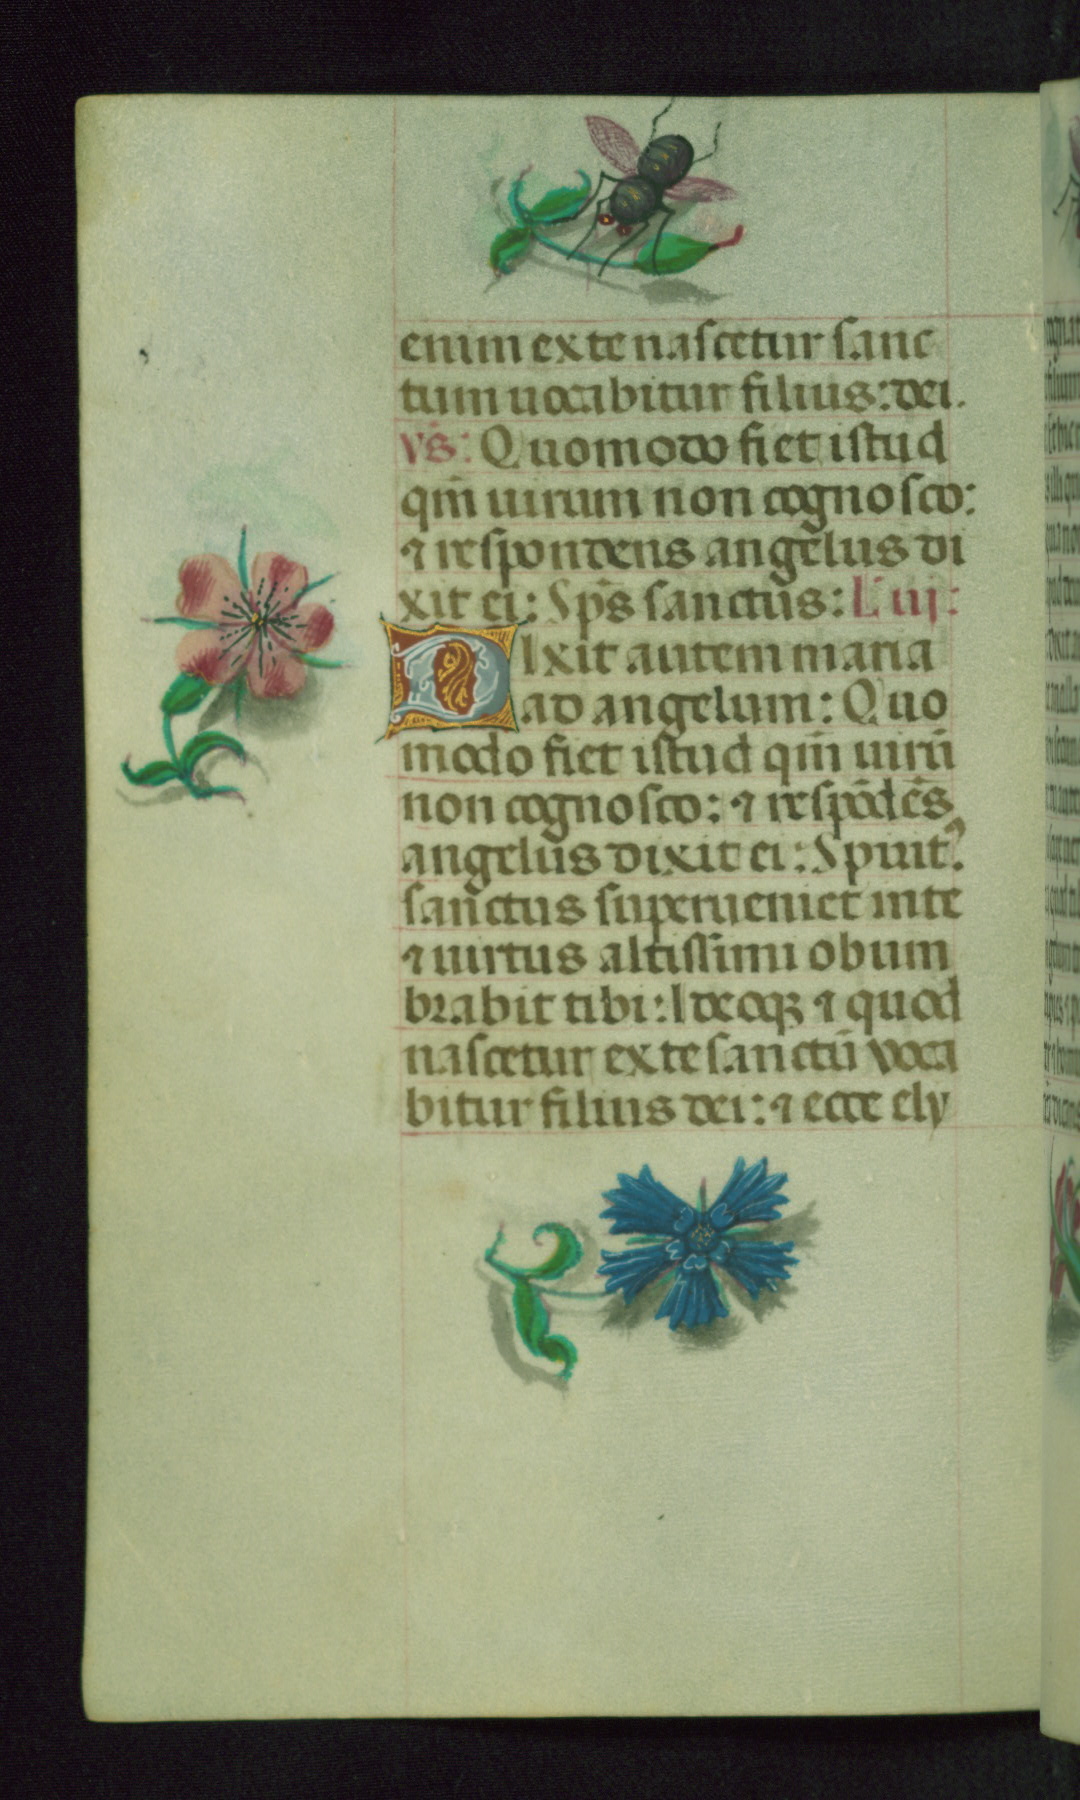 enim ex te nascetur sanc
tum uocabitur filius: dei.
vs̄: Quomodo fiet istud
qm̄ uirum non cognosco:
⁊ respondens angelus di
xit ei: Sps̄ sanctus: L iij:
DIxit autem maria
ad angelum: Quo
modo fiet istud qm̄ uirū
non cognosco: ⁊ respōdēs
angelus dixit ei: Spirit⁹
sanctus superueniet in te
⁊ uirtus altissimi obum
brabit tibi: Ideoqꝫ ⁊ quod
nascetur ex te sanctū voca
bitur filius dei: ⁊ ecce ely